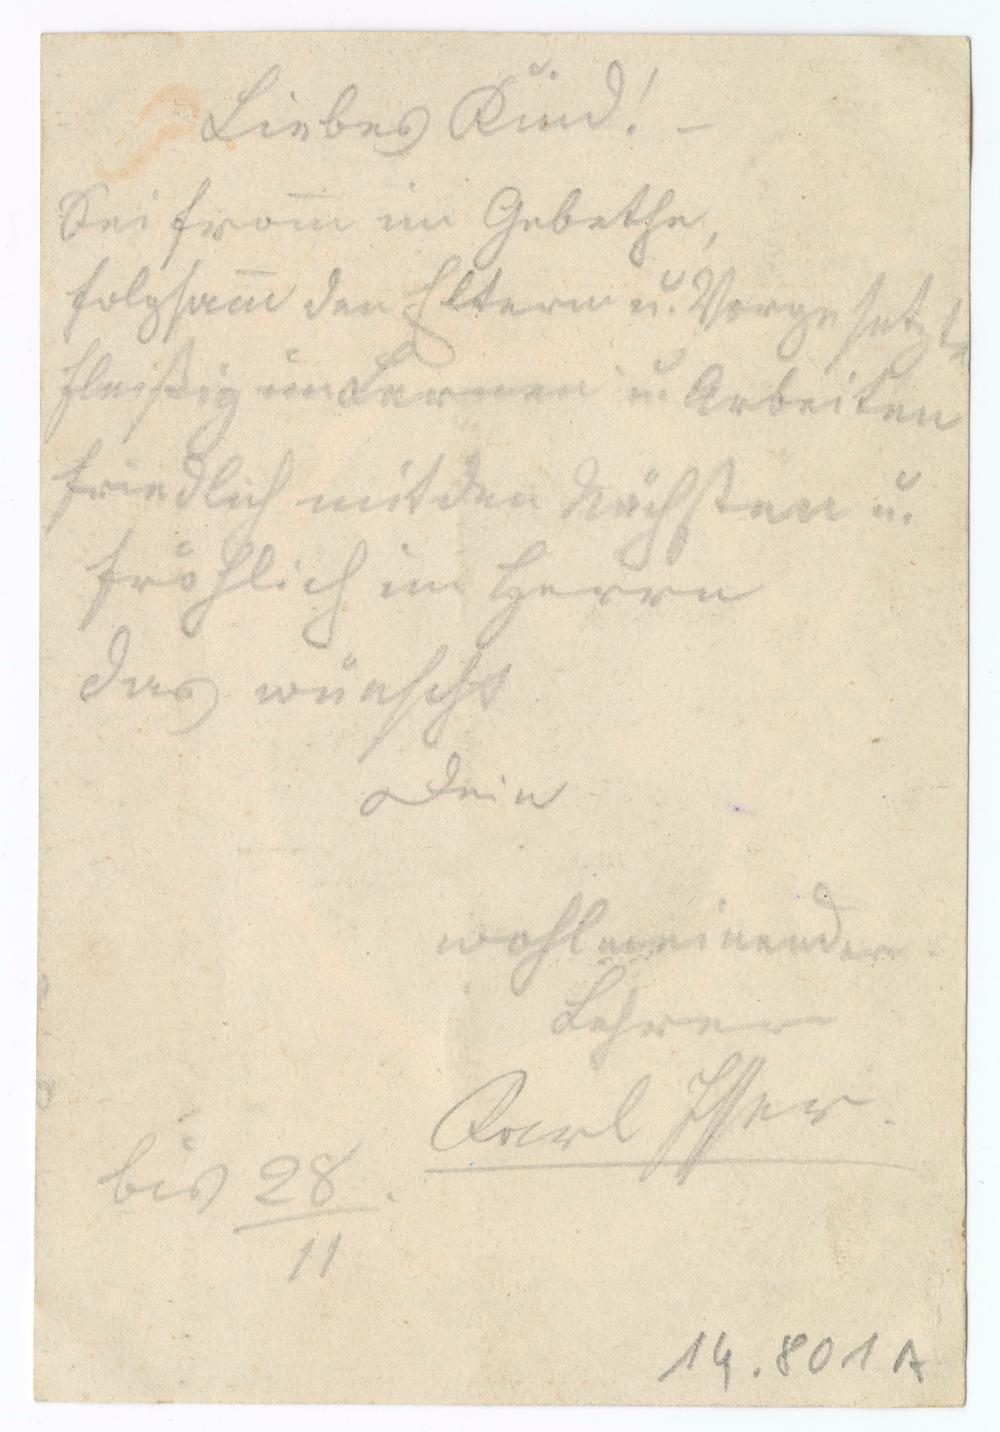 Liebes Kind! –
Sei from̅ im Gebethe,
folgsam̅ den Eltern u. Vorgesetzten
fleißig im Lernen u. Arbeiten
friedlich mit den Nächsten u.
fröhlich im Herrn
das wünscht
Dein
wohlmeinender
Lehrer
Karl
bis 28.
11
14.801A